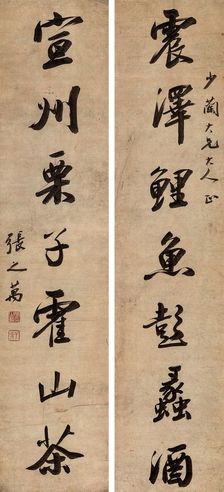 震澤鯉魚彭蠡酒
少蘭大兄大人正
宣州栗子霍山茶
張之萬